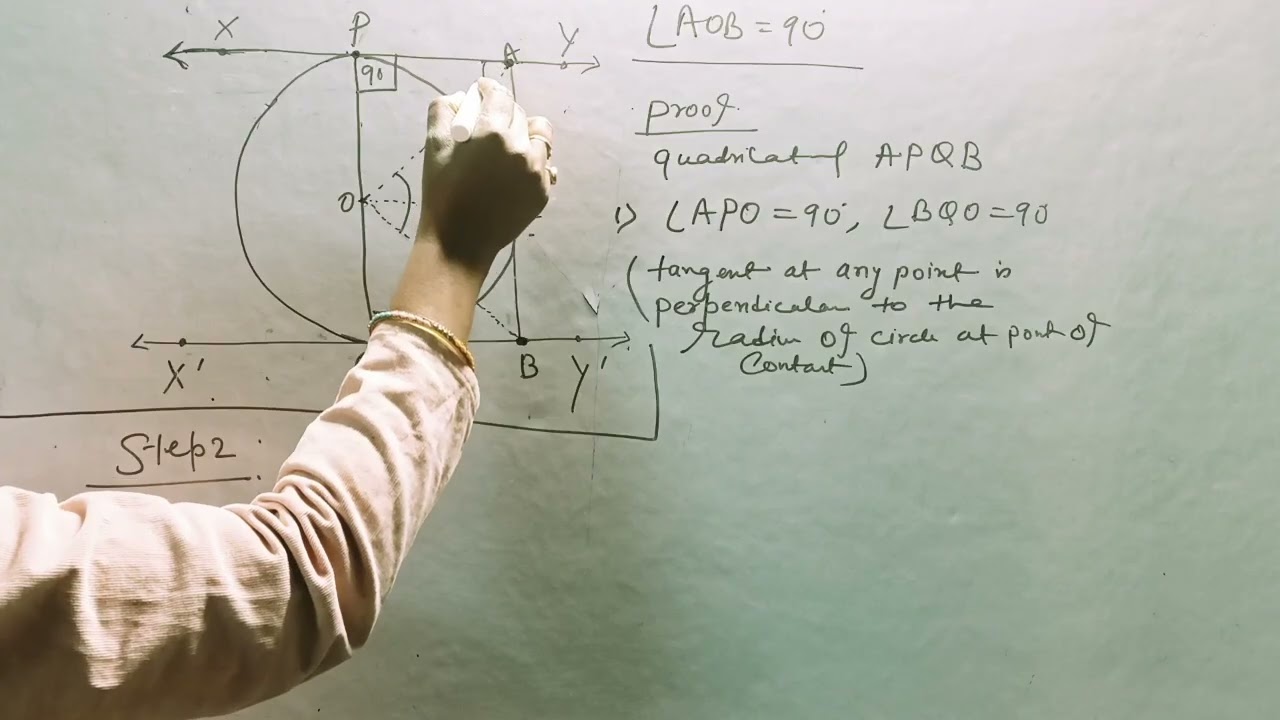 X P A Y
90
O
B
X' Y'
Step2
∠AOB = 90°
proof
quadrilateral APQB
1) ∠APO = 90°, ∠BQO = 90
(tangent at any point is
perpendicular to the
radius of circle at point of
Contact)